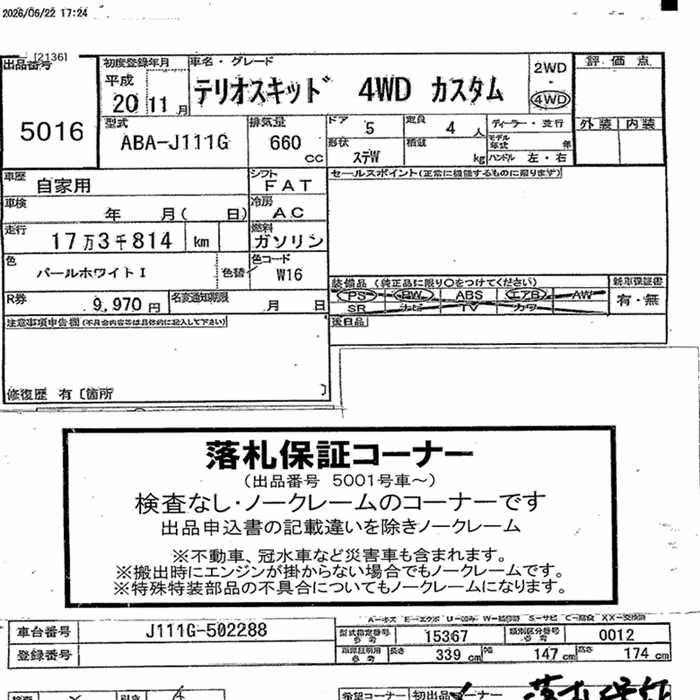 2026/06/22 17:24
[2136]
出品番号 初度登録年月 車名・グレード 評価点
5016
平成 20 11月 テリオスキッド 4WD カスタム 2WD ・ 4WD
型式 ABA-J111G 排気量 660 cc ドア 5 定員 4人 ディーラー・並行 外装 内装
形状 ステW 積載 kg モデル年式 年 ハンドル 左・右
車歴 自家用 シフト FAT セールスポイント(正常に機能するものに限ります)
車検 年 月( 日) 冷房 AC
走行 17万3千814 km 燃料 ガソリン
色 パールホワイトI 色替 色コード W16
装備品 (純正品に限り○をつけてください) 新車保証書
PS PW ABS エアB AW 有・無
SR ナビ TV カワ
R券 9,970円 名変通知期限 月 日
後日品
注意事項申告欄(不具合内容等は具体的に記入して下さい)
修復歴 有〔箇所 〕
落札保証コーナー
(出品番号 5001号車~)
検査なし・ノークレームのコーナーです
出品申込書の記載違いを除きノークレーム
※不動車、冠水車など災害車も含まれます。
※搬出時にエンジンが掛からない場合でもノークレームです。
※特殊特装部品の不具合についてもノークレームになります。
車台番号 J111G-502288 型式指定番号 参考 15367 類別区分番号 参考 0012
登録番号 長さ 339 cm 幅 147 cm 高さ 174 cm
検査 希望コーナー 初出品
落札保証